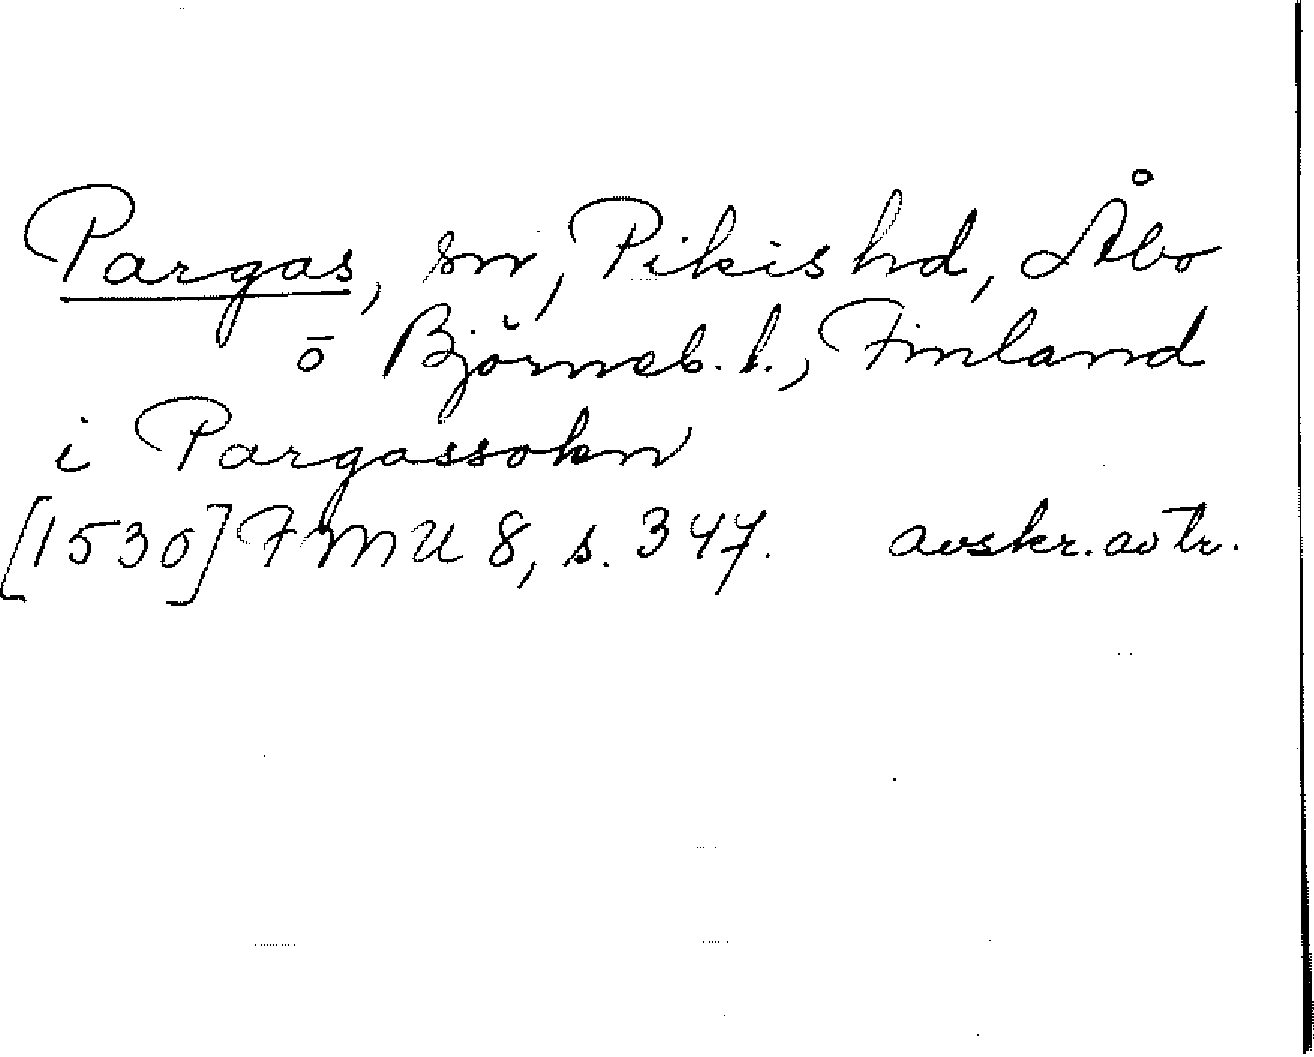 Pargas, sn, Pikis hd, Åbo
o Björneb. l., Finland
i Pargassokn
[1530] FMU 8, s. 347. avskr. av tr.